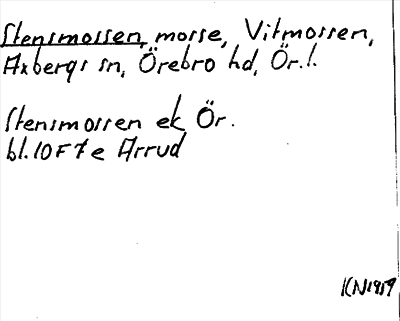 Stensmossen, mosse, Vitmossen,
Axbergs sn, Örebro hd, Ör. l.
Stensmossen ek Ör.
bl. 10 F 7 e Arrud
KN 1959